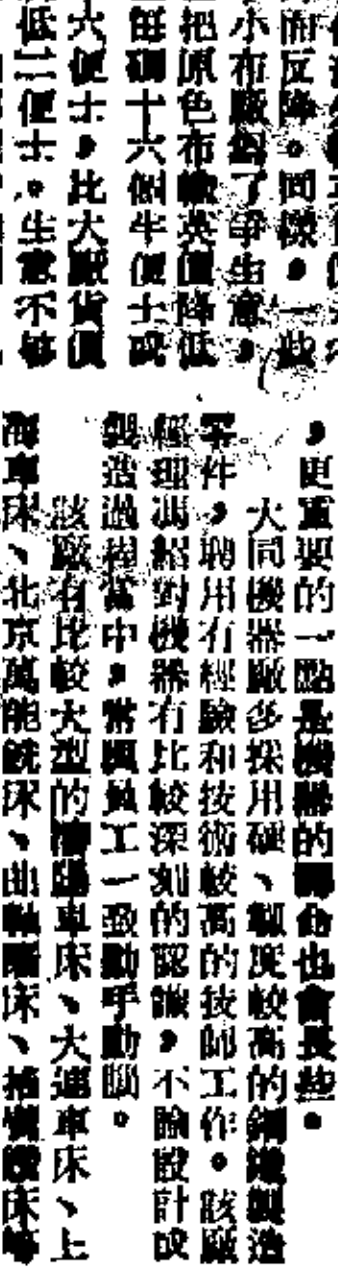 而反降。同樣,一些
小布廠爲了爭生意,
把原色布每英價降低
每碼十六個半便士或
六便士,比大廠貨價
低二便士。生意不夠
,更重要的一點是機器的壽命也會長些。
大同機器廠多採用硬、韌度較高的鋼鐵製造
零件,聘用有經驗和技術較高的技師工作。該廠
經理馮紹對機器有比較深刻的認識,不論設計或
製造過程當中,常與員工一致動手動腦。
該廠有比較大型的濟陽車床、大連車床、上
海車床、北京萬能銑床、曲軸磨床、插銷鑽床等